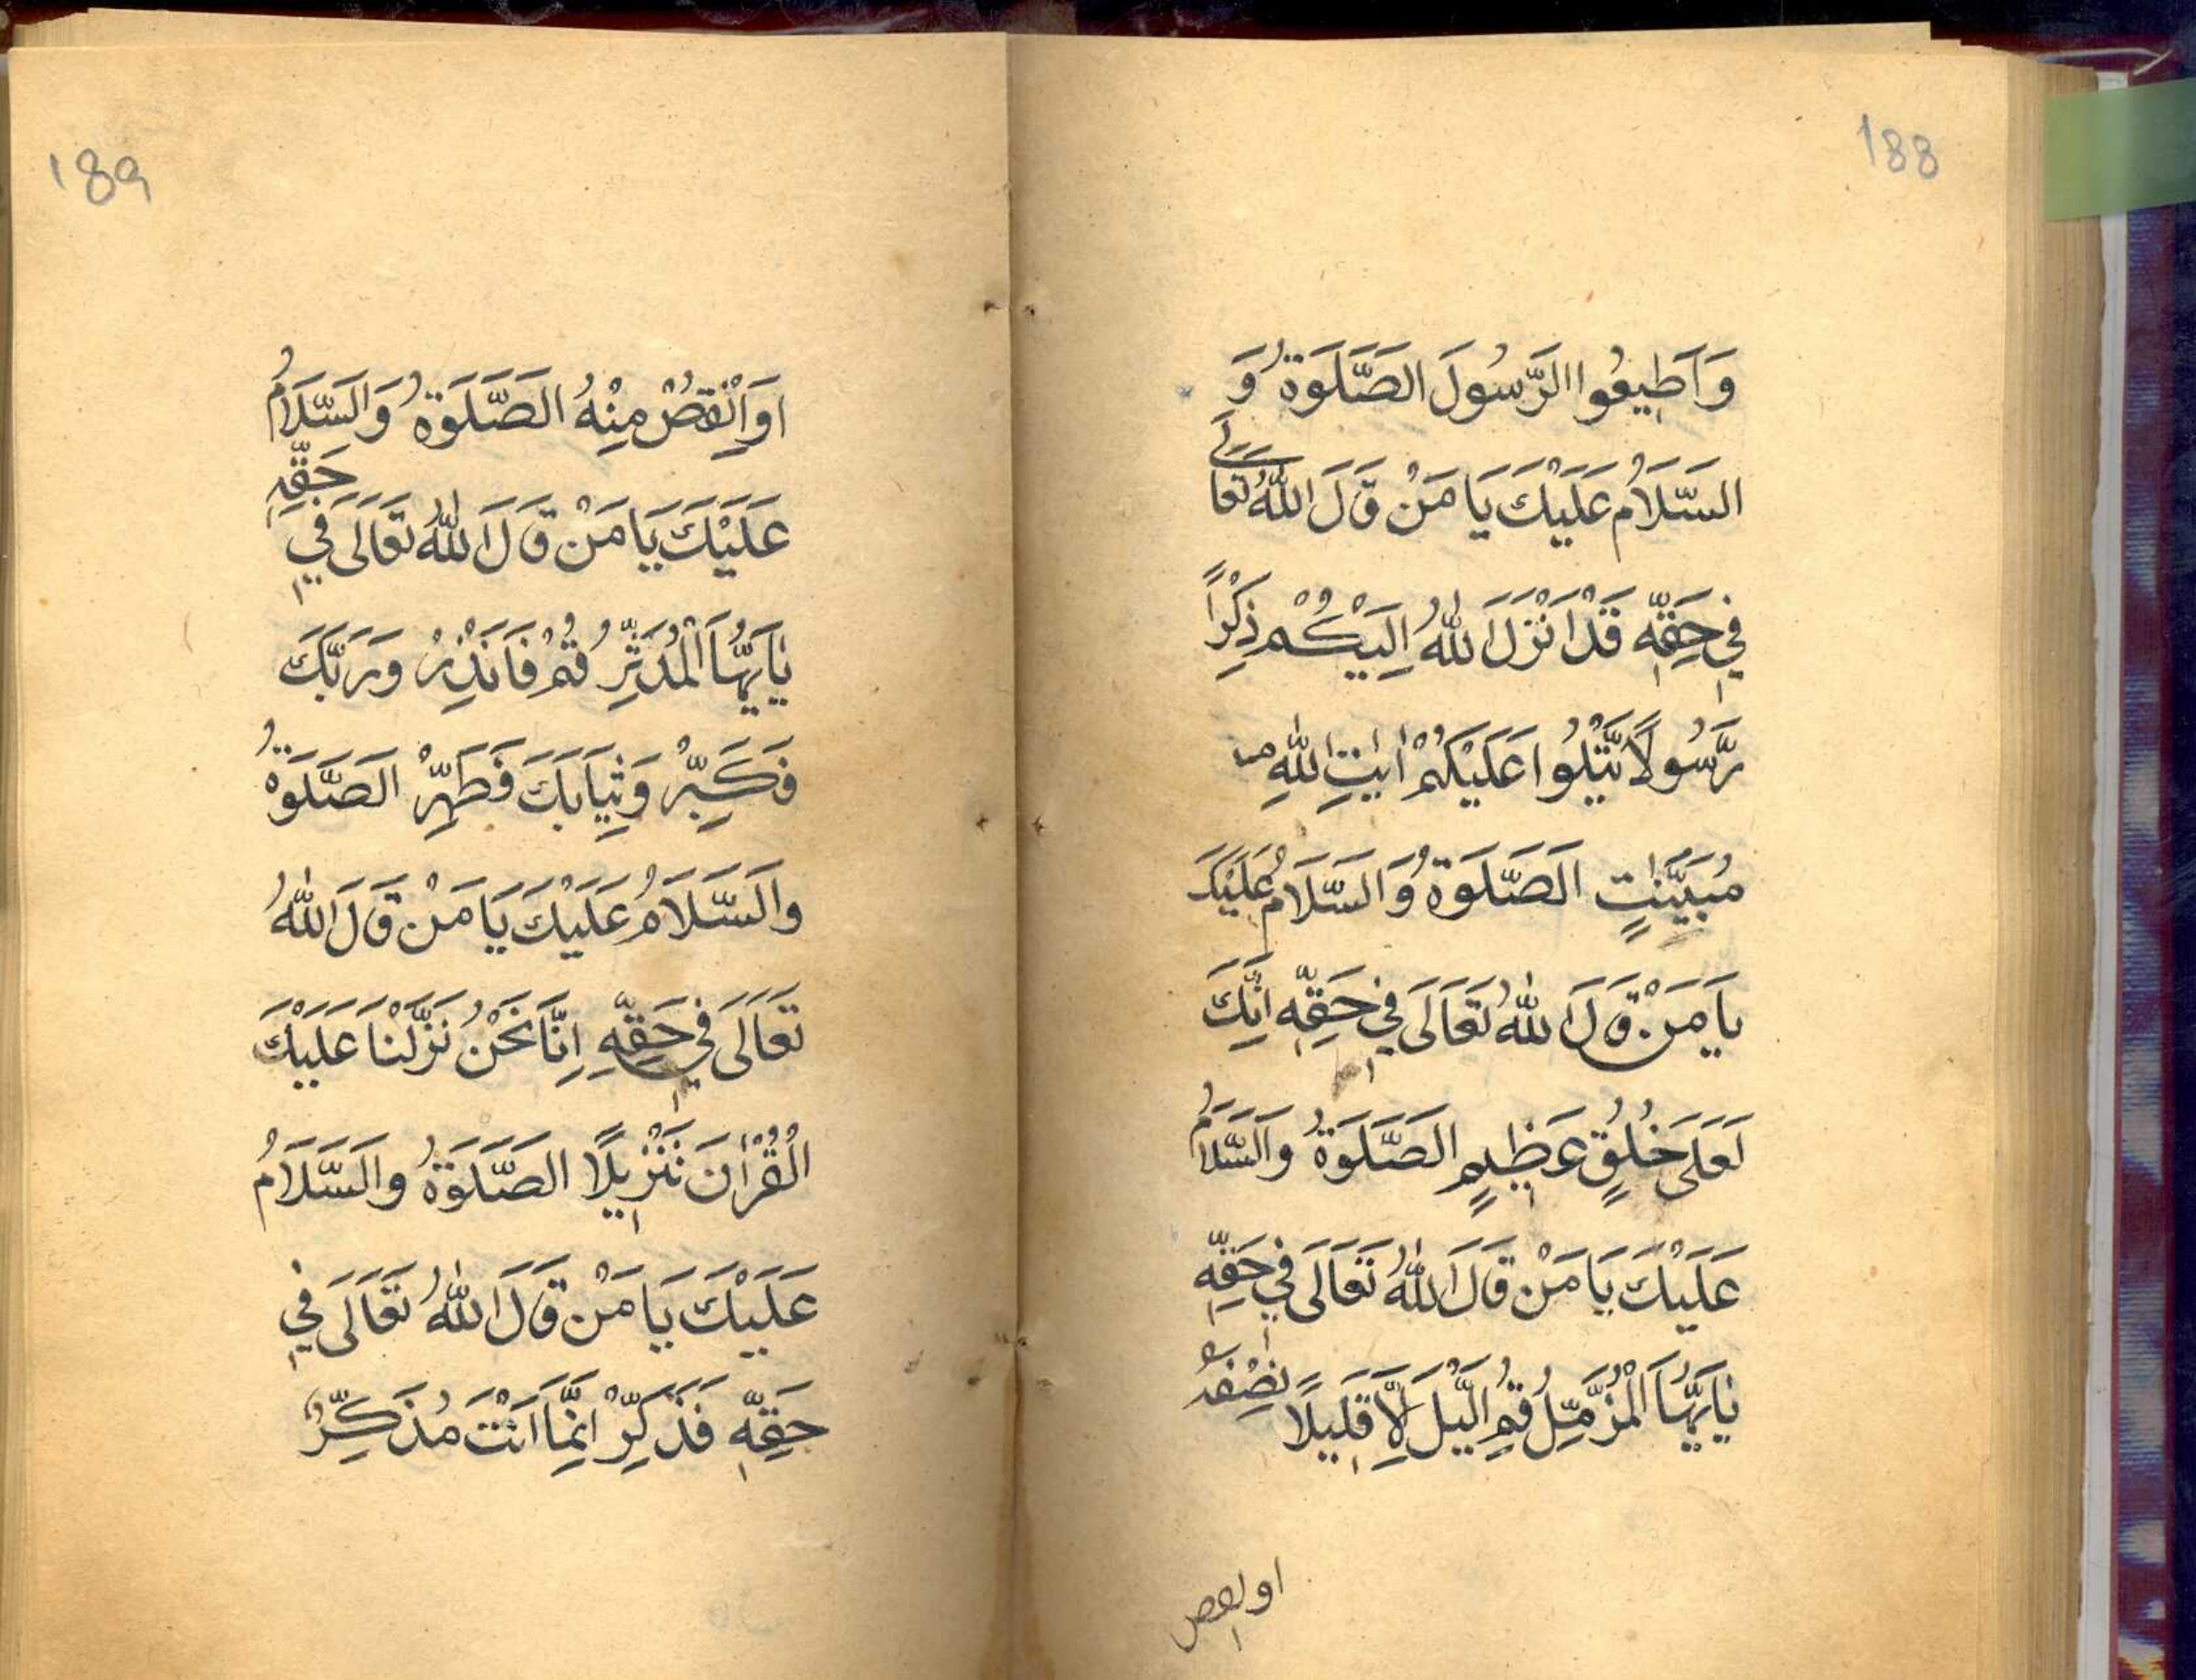 188
وَاَطِيعُوا الرَّسُولَ الصَّلَوةُ وَ
السَّلَامُ عَلَيْكَ يَا مَنْ قَالَ اللّٰهُ تَعَالَى
فِي حَقِّهِ قَدْ اَنْزَلَ اللّٰهُ اِلَيْكُمْ ذِكْرًا
رَّسُولًا يَّتْلُوا عَلَيْكُمْ اٰيٰتِ اللّٰهِ
مُبَيِّنٰتٍ الصَّلَوةُ وَالسَّلَامُ عَلَيْكَ
يَا مَنْ قَالَ اللّٰهُ تَعَالَى فِي حَقِّهِ اِنَّكَ
لَعَلَى خُلُقٍ عَظِيمٍ الصَّلَوةُ وَالسَّلَامُ
عَلَيْكَ يَا مَنْ قَالَ اللّٰهُ تَعَالَى فِي حَقِّهِ
يٰاَيُّهَا الْمُزَّمِّلُ قُمِ الَّيْلَ اِلَّا قَلِيلًا نِصْفَهُ
او انقص
189
اَوِ انْقُصْ مِنْهُ الصَّلَوةُ وَالسَّلَامُ
عَلَيْكَ يَا مَنْ قَالَ اللّٰهُ تَعَالَى فِي حَقِّهِ
يٰاَيُّهَا الْمُدَّثِّرُ قُمْ فَاَنْذِرْ وَرَبَّكَ
فَكَبِّرْ وَثِيَابَكَ فَطَهِّرْ الصَّلَوةُ
وَالسَّلَامُ عَلَيْكَ يَا مَنْ قَالَ اللّٰهُ
تَعَالَى فِي حَقِّهِ اِنَّا نَحْنُ نَزَّلْنَا عَلَيْكَ
الْقُرْاٰنَ تَنْزِيلًا الصَّلَوةُ وَالسَّلَامُ
عَلَيْكَ يَا مَنْ قَالَ اللّٰهُ تَعَالَى فِي
حَقِّهِ فَذَكِّرْ اِنَّمَا اَنْتَ مُذَكِّرٌ